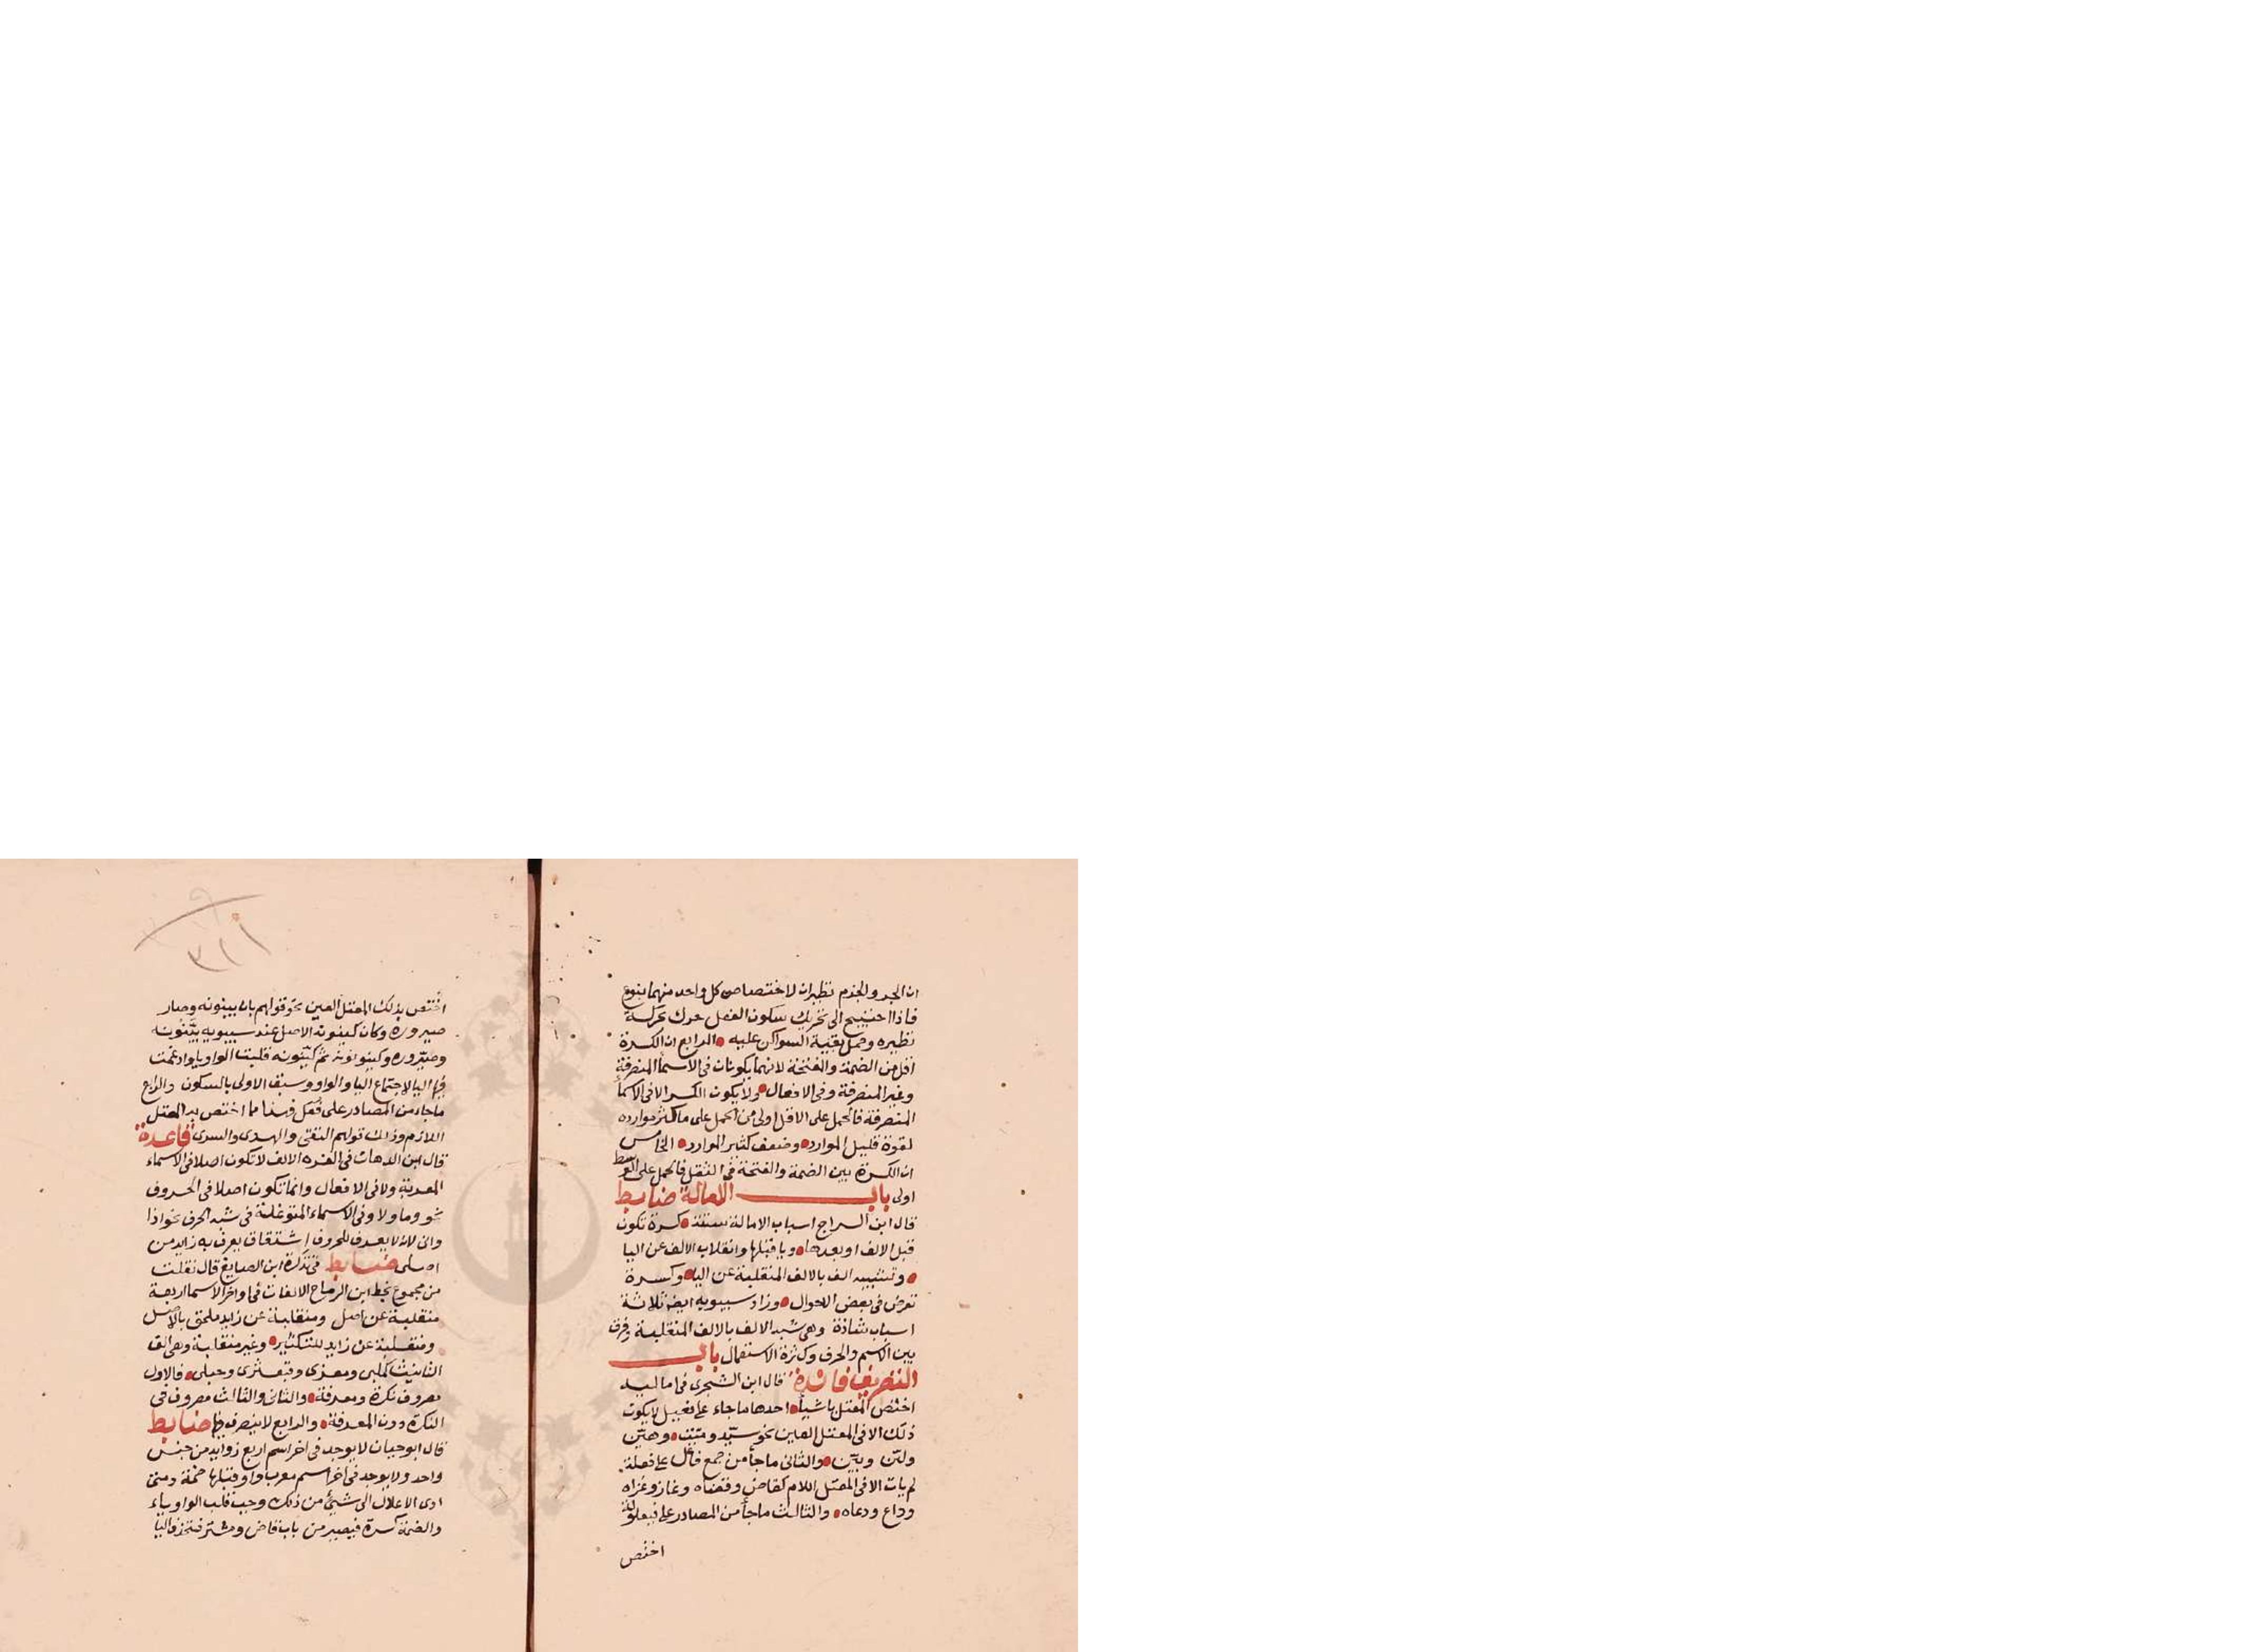 ان الجر والجزم نظيران لاختصاص كل واحد منهما بنوع
فاذا احتيج الى تحريك سكون الفعل حرك بحركة
نظيره وحمل بقية السواكن عليه الرابع ان الكسرة
اقل من الضمة والفتحة لانهما يكونان فى الاسما المنصرفة
وغير المنصرفة وفى الافعال ولا يكون الكسر الا فى الاسما
المنصرفة فالحمل على الاقل اولى من الحمل على ما كثر موارده
لقوة قليل الموارد وضعف كثير الموارد الخامس
ان الكسرة بين الضمة والفتحة فى الثقل فالحمل على الوسط
اولى باب الامالة ضابط
قال ابن السراج اسباب الامالة ستة كسرة تكون
قبل الالف او بعدها ويا قبلها وانقلاب الالف عن اليا
وتشبيه الف بالالف المنقلبة عن اليا وكسرة
تعرض فى بعض الاحوال وزاد سيبويه ايضا ثلاثة
اسباب شاذة وهى شبه الالف بالالف المنقلبة وفرق
بين الاسم والحرف وكثرة الاستعمال باب
التصريف فائدة قال ابن الشجرى فى اماليه
اختص المعتل باشيا احدها ما جاء على فيعل لا يكون
ذلك الا فى المعتل العين نحو سيّد وميّت وهيّن
وليّن وبيّن والثانى ما جا من جمع فاعل على فعلة
لم يات الا فى المعتل اللام كقاض وقضاه وغاز وغزاه
وداع ودعاه والثالث ما جا من المصادر على فيعلولة
اختص
٣١١
اختص بذلك المعتل العين نحو قولهم بان بينونه وصار
صيروره وكان كينونه الاصل عند سيبويه بيّنونه
وصيّروره وكيونونه ثم كيّنونه قلبت الواو يا وادغمت
فيها اليا لاجتماع اليا والواو وسبق الاولى بالسكون والرابع
ما جا من المصادر على فُعَل فهذا مما اختص به المعتل
اللازم وذلك قولهم التقى والهدى والسرى قاعدة
قال ابن الدهان فى الغره الالف لا تكون اصلا فى الاسماء
المعربة ولا فى الافعال وانما تكون اصلا فى الحروف
نحو وما ولا وفى الاسماء المتوغلة فى شبه الحرف نحو اذا
وانى لانه لا يعرف للحروف اشتقاق يعرف به زايد من
اصلى ضابط فى تذكرة ابن الصايغ قال نقلت
من مجموع بخط ابن الرماح الالفات فى اواخر الاسما اربعة
منقلبة عن اصل ومنقلبة عن زايد ملحق بالاصل
ومنقلبة عن زايد للتكثير وغير منقلبة وهى الف
التانيث كملهى ومعزى وقبعثرى وحبلى فالاول
مصروف نكرة ومعرفة والثانى والثالث مصروف فى
النكرة دون المعرفة والرابع لا ينصرف فيهما ضابط
قال ابو حيان لا يوجد فى اخر اسم اربع زوايد من جنس
واحد ولا يوجد فى اخر اسم معرب واو وقبلها ضمة ومتى
ادى الاعلال الى شيئ من ذلك وجب قلب الواو ياء
والضمة كسرة فيصير من باب قاض ومشتر فتحذف اليا